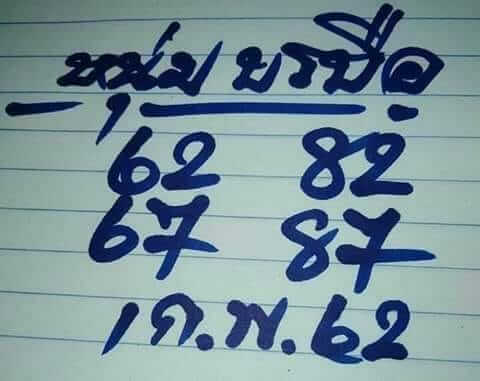 หนุ่ม บรบือ
62 82
67 87
1 ก.พ.62